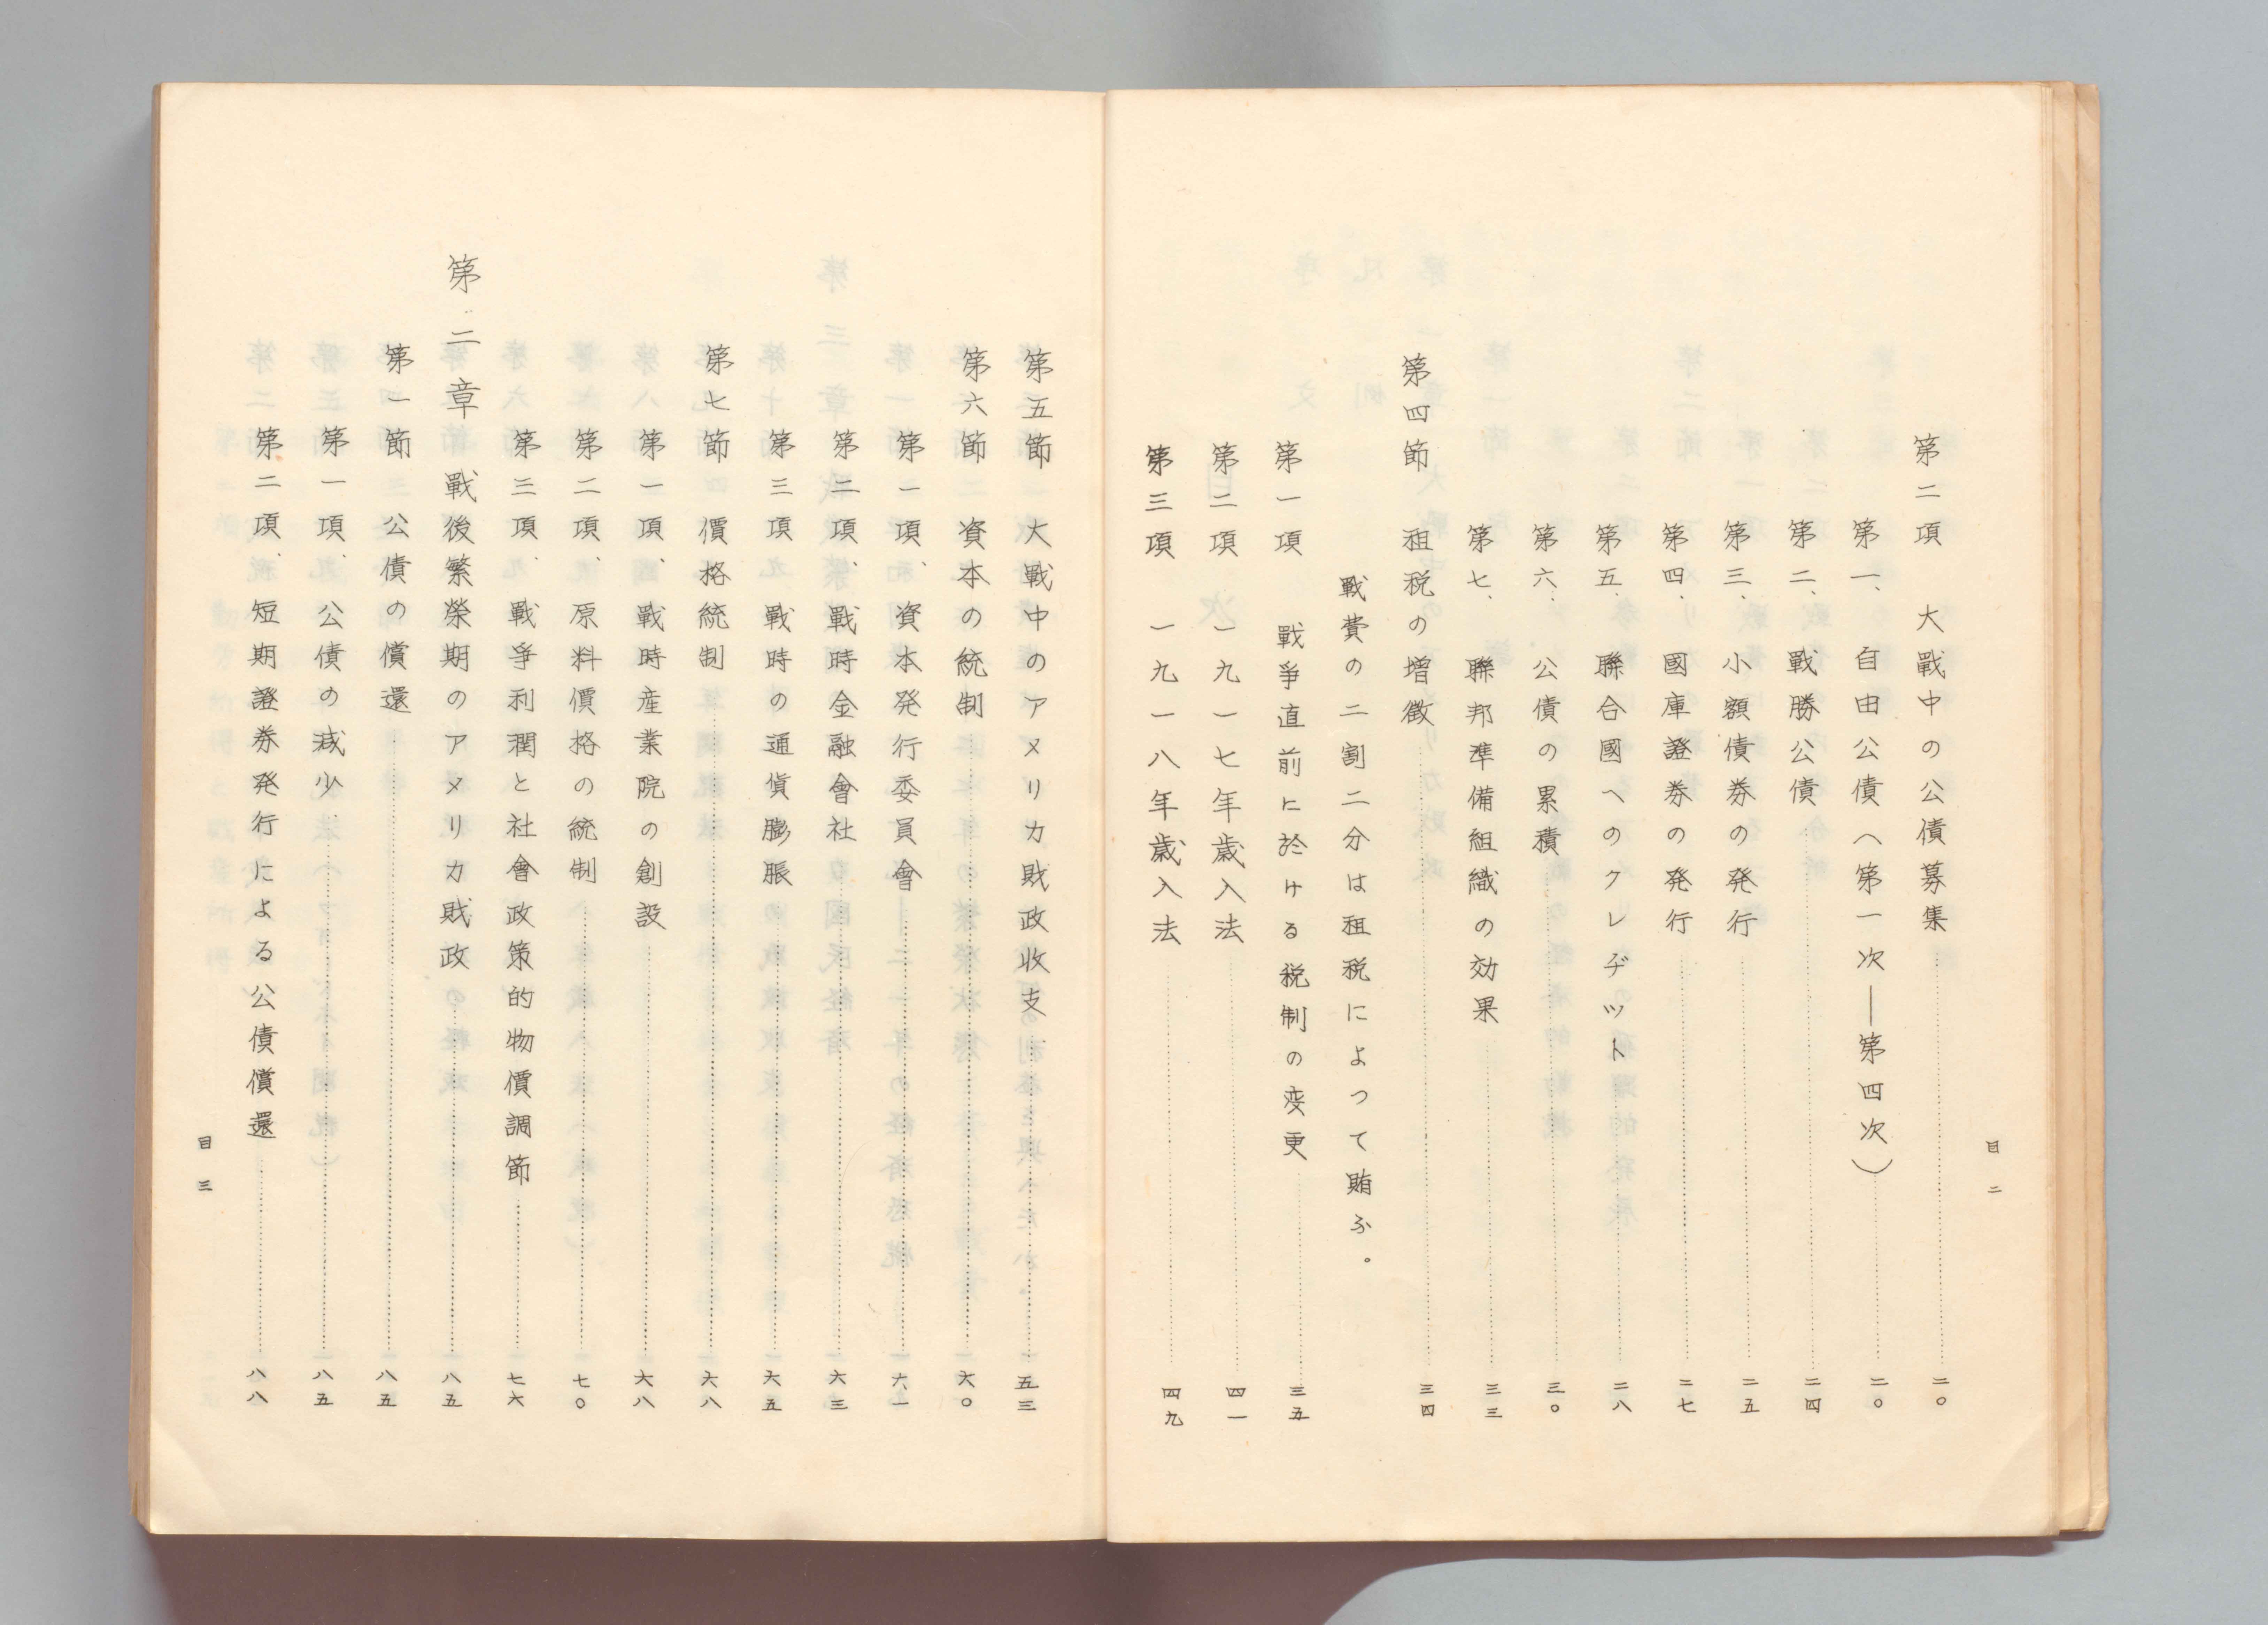 目二
第二項　大戰中の公債募集……二〇
第一、自由公債（第一次―第四次）……二〇
第二、戰勝公債……二四
第三、小額債券の発行……二五
第四、國庫證券の発行……二七
第五、聯合國へのクレヂット……二八
第六、公債の累積……三〇
第七、聯邦準備組織の効果……三三
第四節　租税の増徴……三四
戰費の二割二分は租税によって賄ふ。
第一項　戰爭直前に於ける税制の変更……三五
第二項　一九一七年歳入法……四一
第三項　一九一八年歳入法……四九
第五節　大戰中のアメリカ財政收支……五三
第六節　資本の統制……六〇
第一項、資本発行委員會……六一
第二項、戰時金融會社……六三
第三項　戰時の通貨膨脹……六五
第七節　價格統制……六八
第一項、戰時産業院の創設……六八
第二項、原料價格の統制……七〇
第三項、戰爭利潤と社會政策的物價調節……七六
第二章　戰後繁榮期のアメリカ財政……八五
第一節　公債の償還……八五
第一項、公債の減少……八五
第二項、短期證券発行による公債償還……八八
目三